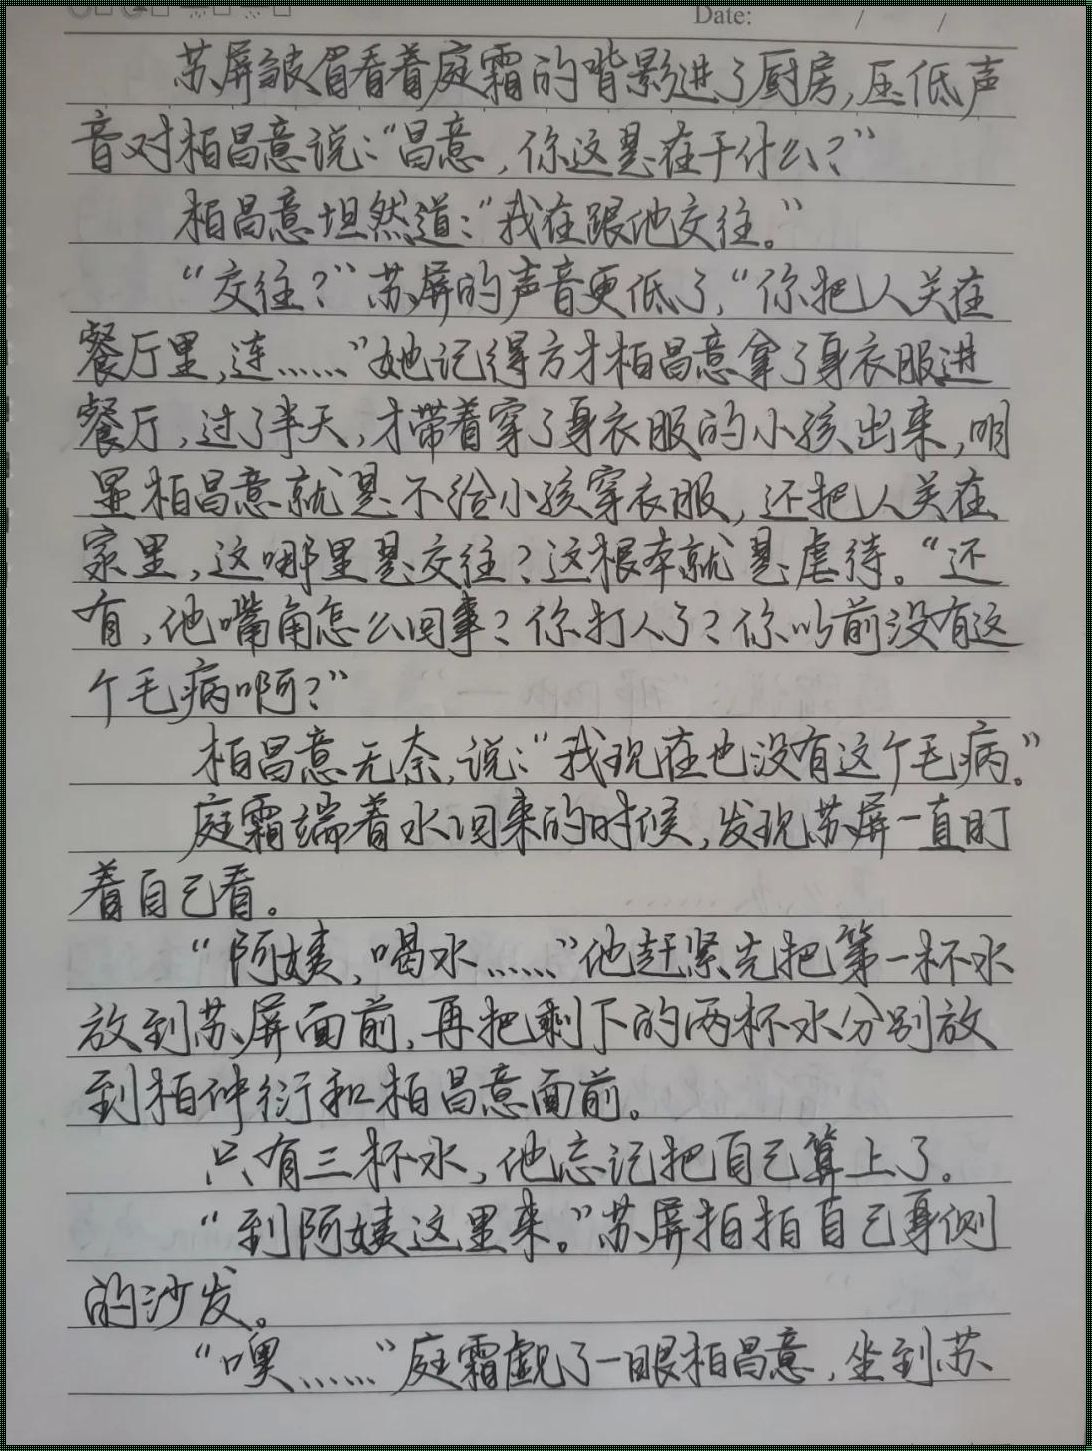 Date: / /
苏屏皱眉看着庭霜的背影进了厨房,压低声
音对柏昌意说:“昌意,你这是在干什么?”
柏昌意坦然道:“我在跟他交往。”
“交往?”苏屏的声音更低了,“你把人关在
餐厅里,连……”她记得方才柏昌意拿了身衣服进
餐厅,过了半天,才带着穿了身衣服的小孩出来,明
显柏昌意就是不给小孩穿衣服,还把人关在
家里,这哪里是交往?这根本就是虐待。“还
有,他嘴角怎么回事?你打人了?你以前没有这
个毛病啊?”
柏昌意无奈,说:“我现在也没有这个毛病。”
庭霜端着水回来的时候,发现苏屏一直盯
着自己看。
“阿姨,喝水……”他赶紧先把第一杯水
放到苏屏面前,再把剩下的两杯水分别放
到柏仲衍和柏昌意面前。
只有三杯水,他忘记把自己算上了。
“到阿姨这里来。”苏屏拍拍自己身侧
的沙发。
“噢……”庭霜觑了一眼柏昌意,坐到苏